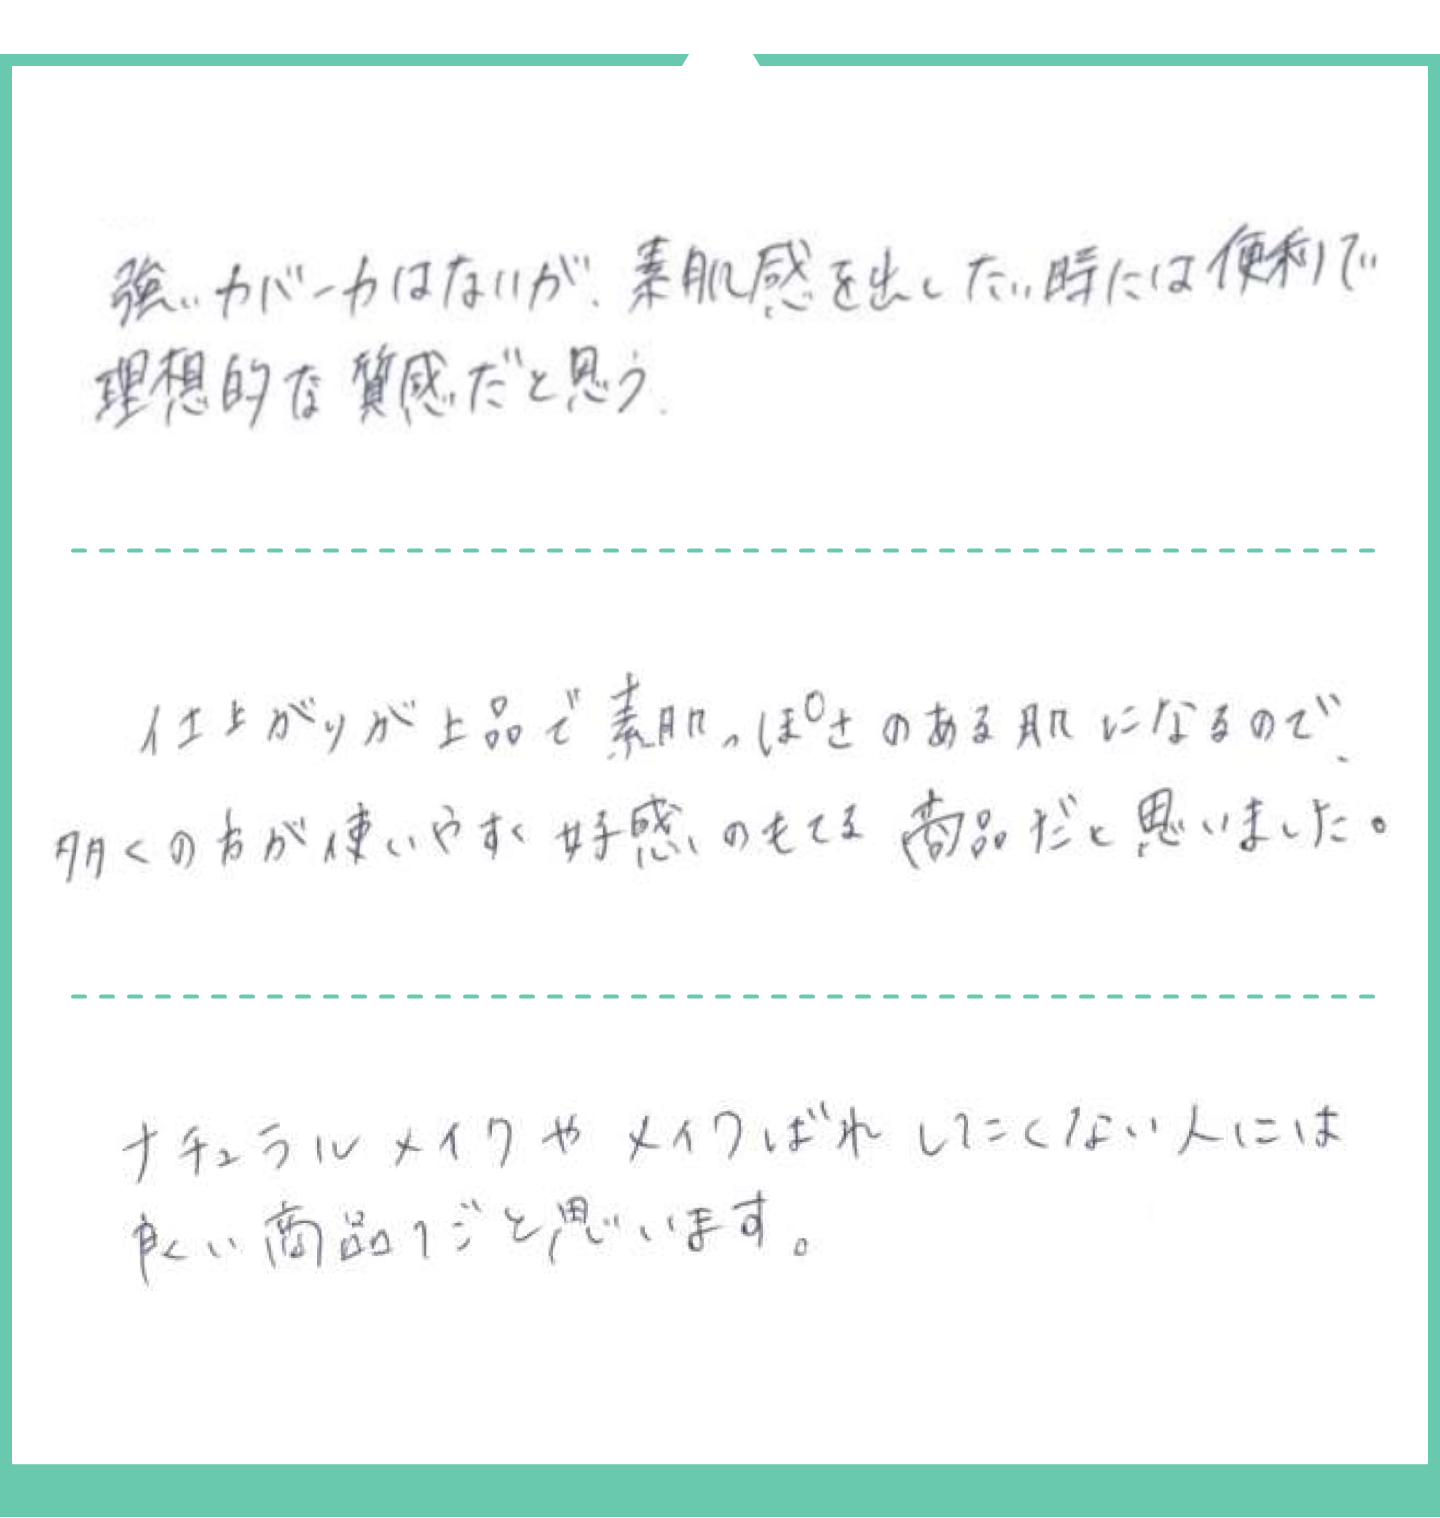 強いカバー力はないが、素肌感を出したい時には便利で
理想的な質感だと思う.
仕上がりが上品で素肌っぽさのある肌になるので、
多くの方が使いやすく好感のもてる商品だと思いました。
ナチュラルメイクやメイクばれしたくない人には
良い商品だと思います。